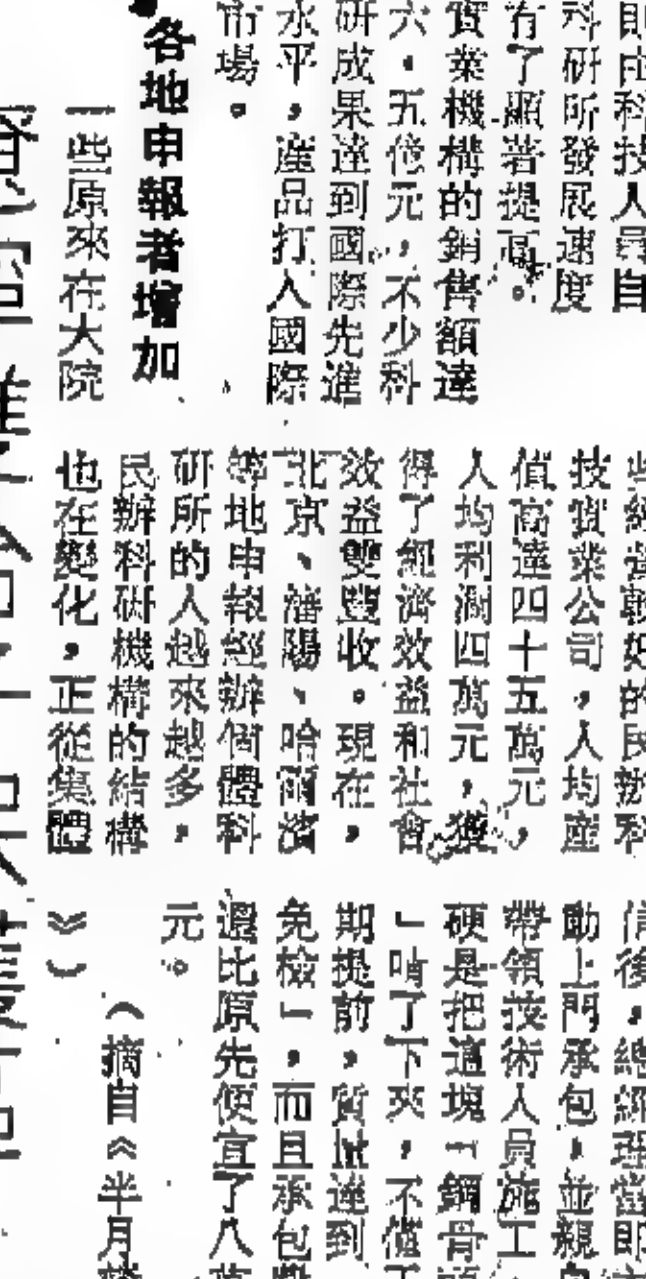 即由科技人員自
科研所發展速度
有了顯著提高。
實業機構的銷售額達
六·五億元,不少科
研成果達到國際先進
水平,產品打入國際
市場。
各地申報者增加
一些原來在大院
些經營較好的民辦科
技實業公司,人均產
值高達四十五萬元,
人均利潤四萬元,獲
得了經濟效益和社會
效益雙豐收。現在,
北京、瀋陽、哈爾濱
等地申報經辦個體科
研所的人越來越多,
民辦科研機構的結構
也在變化,正從集體
信後,總經理當即
動上門承包,並親
帶領技術人員施工
硬是把這塊「鋼骨
」啃了下來,不僅
期提前,質量達到
免檢」,而且承包
還比原先便宜了八
元。
(摘自《半月
》)